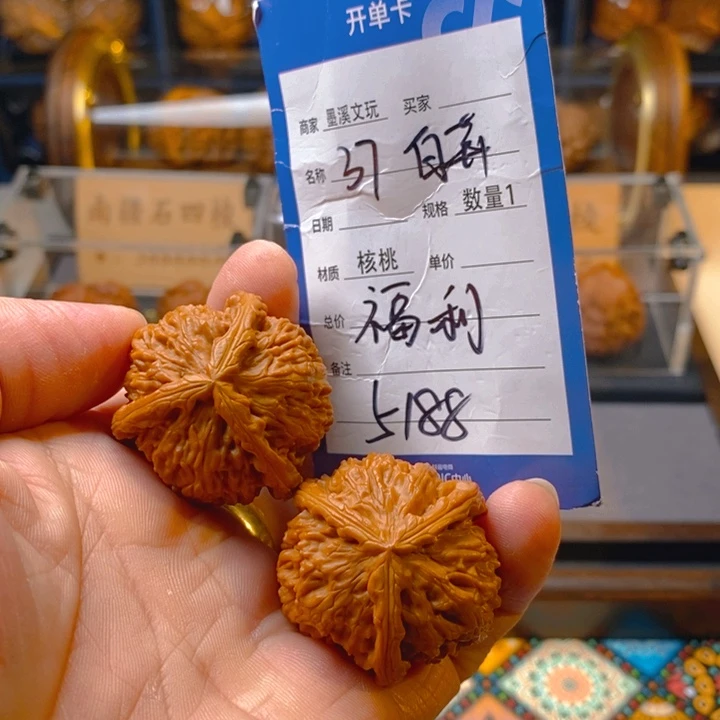 开单卡
商家 墨溪文玩 买家
名称 37
日期 规格 数量1
材质 核桃 单价
总价 福利
备注
5188